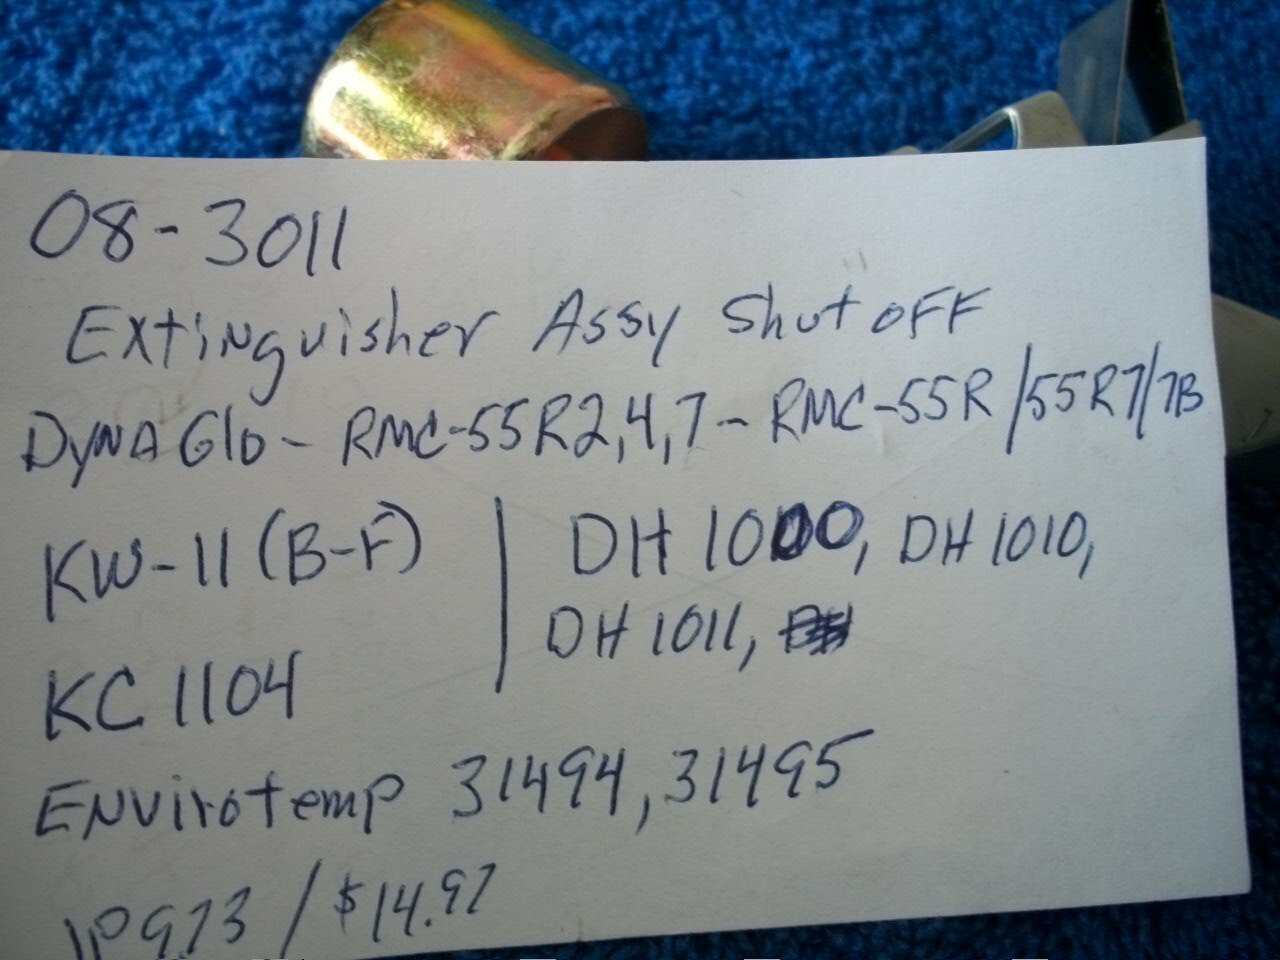 08-3011
Extinguisher Assy Shut off
Dyna Glo - RMC-55R2,4,7 - RMC-55R/55R7/7B
KW-11 (B-F)
KC 1104
DH 1000, DH 1010,
DH 1011,
Envirotemp 31494, 31495
/ $14.97